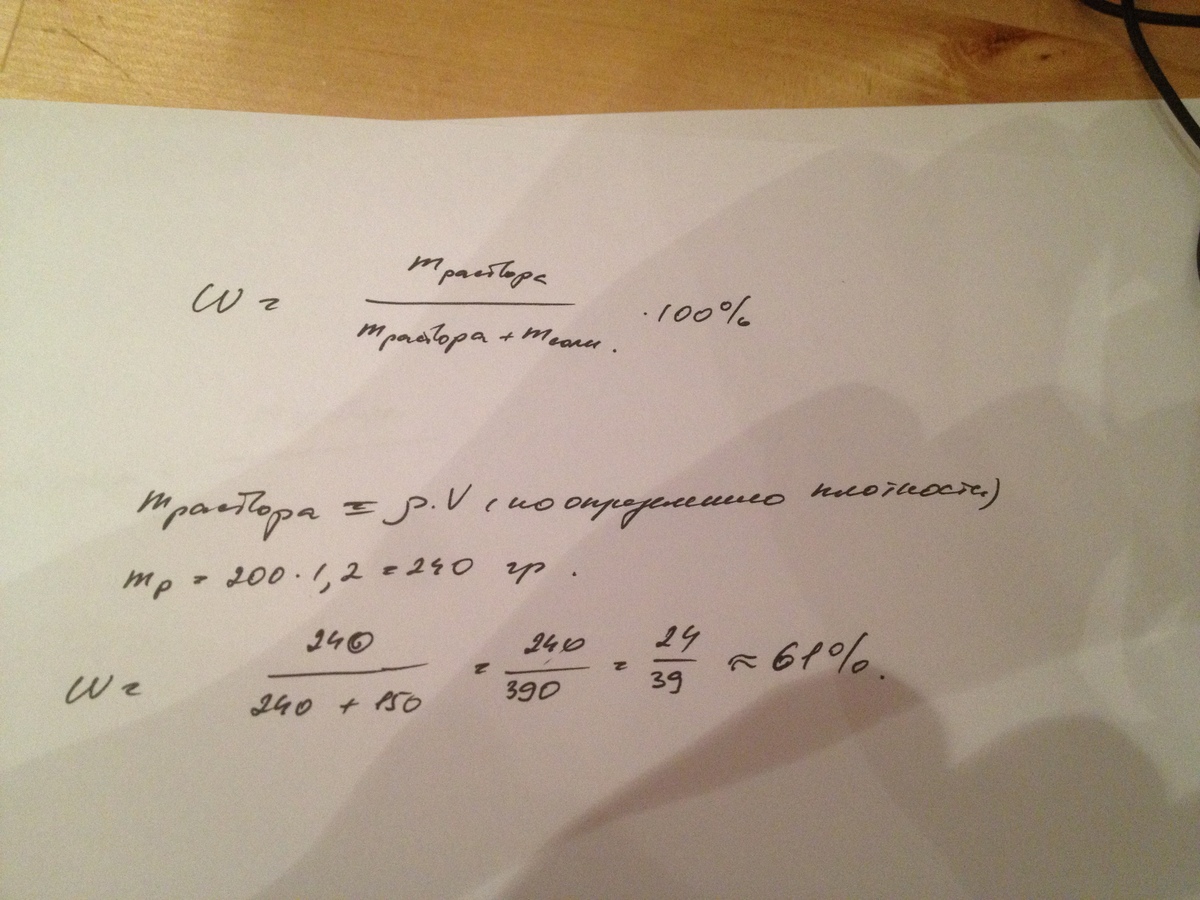 W = m раствора / (m раствора + m соли.) · 100%
m раствора = ρ.V (по определению плотности)
mр = 200 · 1,2 = 240 гр .
W = 240 / (240 + 150) = 240 / 390 = 24 / 39 ≈ 61%.